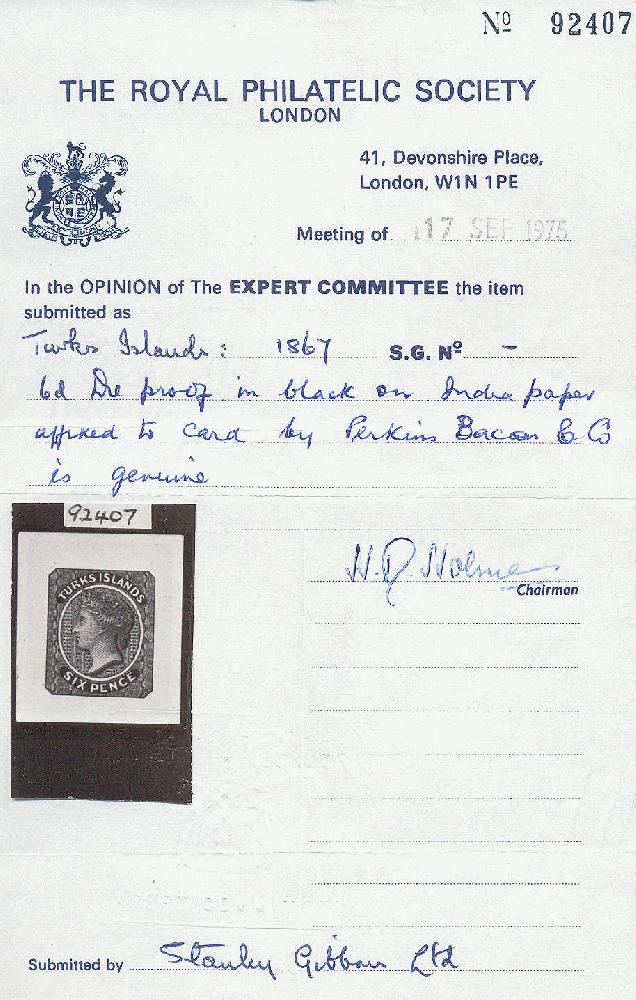 Nº 92407
THE ROYAL PHILATELIC SOCIETY
LONDON
41, Devonshire Place,
London, W1N 1PE
Meeting of 17 SEP 1975
In the OPINION of The EXPERT COMMITTEE the item
submitted as
Turks Islands: 1867 S.G. Nº -
6d Die proof in black on India paper
affixed to card by Perkins Bacon & Co
is genuine
92407
TURKS ISLANDS
SIX PENCE
H.R. Holmes
Chairman
Submitted by Stanley Gibbons Ltd